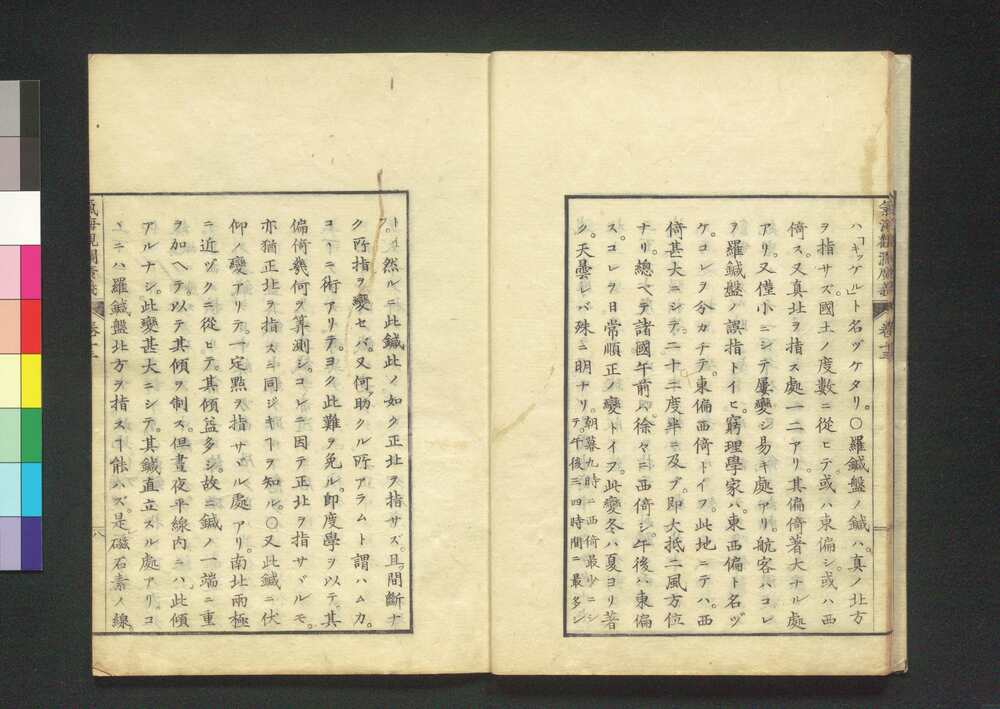 ハ「キッケルト名ヅケタリ。〇羅鍼盤ノ鍼ハ。真ノ北方
ヲ指サズ。國土ノ度數ニ從ヒテ。或ハ東偏シ。或ハ西
倚ス。又真北ヲ指ス處一二アリ。其偏倚著大ナル處
アリ。又僅小ニシテ屢變シ易キ處アリ。航客ハコレ
ヲ羅鍼盤ノ誤指トイヒ。窮理學家ハ。東西偏ト名ヅ
ケ。コレヲ分カチテ。東偏西倚トイフ。此地ニテハ。西
倚甚大ニシテ。二十二度半ニ及ブ。即大抵二風方位
ナリ。總ベテ諸國午前ハ。徐々ニ西倚シ。午後ハ東偏
ス。コレヲ日常順正ノ變トイフ。此變冬ハ夏ヨリ著
ク。天曇レバ殊ニ明ナリ。朝暮九時ニ西倚最少ニシ
テ。午後三四時間ニ最多シ
氣海觀瀾廣義 卷十三
ト。然ルニ此鍼此ノ如ク正北ヲ指サズ。且間斷ナ
ク所指ヲ變セバ。又何ノ助クル所アラムト謂ハムカ。
コヽニ術アリテ。ヨク此難ヲ免ル。即度學ヲ以テ。其
偏倚幾何ヲ算測シ。コレニ因テ正北ヲ指サヾルモ。
亦猶正北ヲ指スニ同ジキヿヲ知ル。〇又此鍼ニ伏
仰ノ變アリテ。一定點ヲ指サヾル處アリ。南北兩極
ニ近ヅクニ從ヒテ。其傾益多シ。故ニ鍼ノ一端ニ重
ヲ加ヘテ。以テ其傾ヲ制ス。但晝夜平線内ニハ。此傾
アルナシ。此變甚大ニシテ。其鍼直立スル處アリ。コ
ヽニハ羅鍼盤北方ヲ指スヿ能ハズ。是磁石素ノ線。
氣海觀瀾廣義 卷十三 八